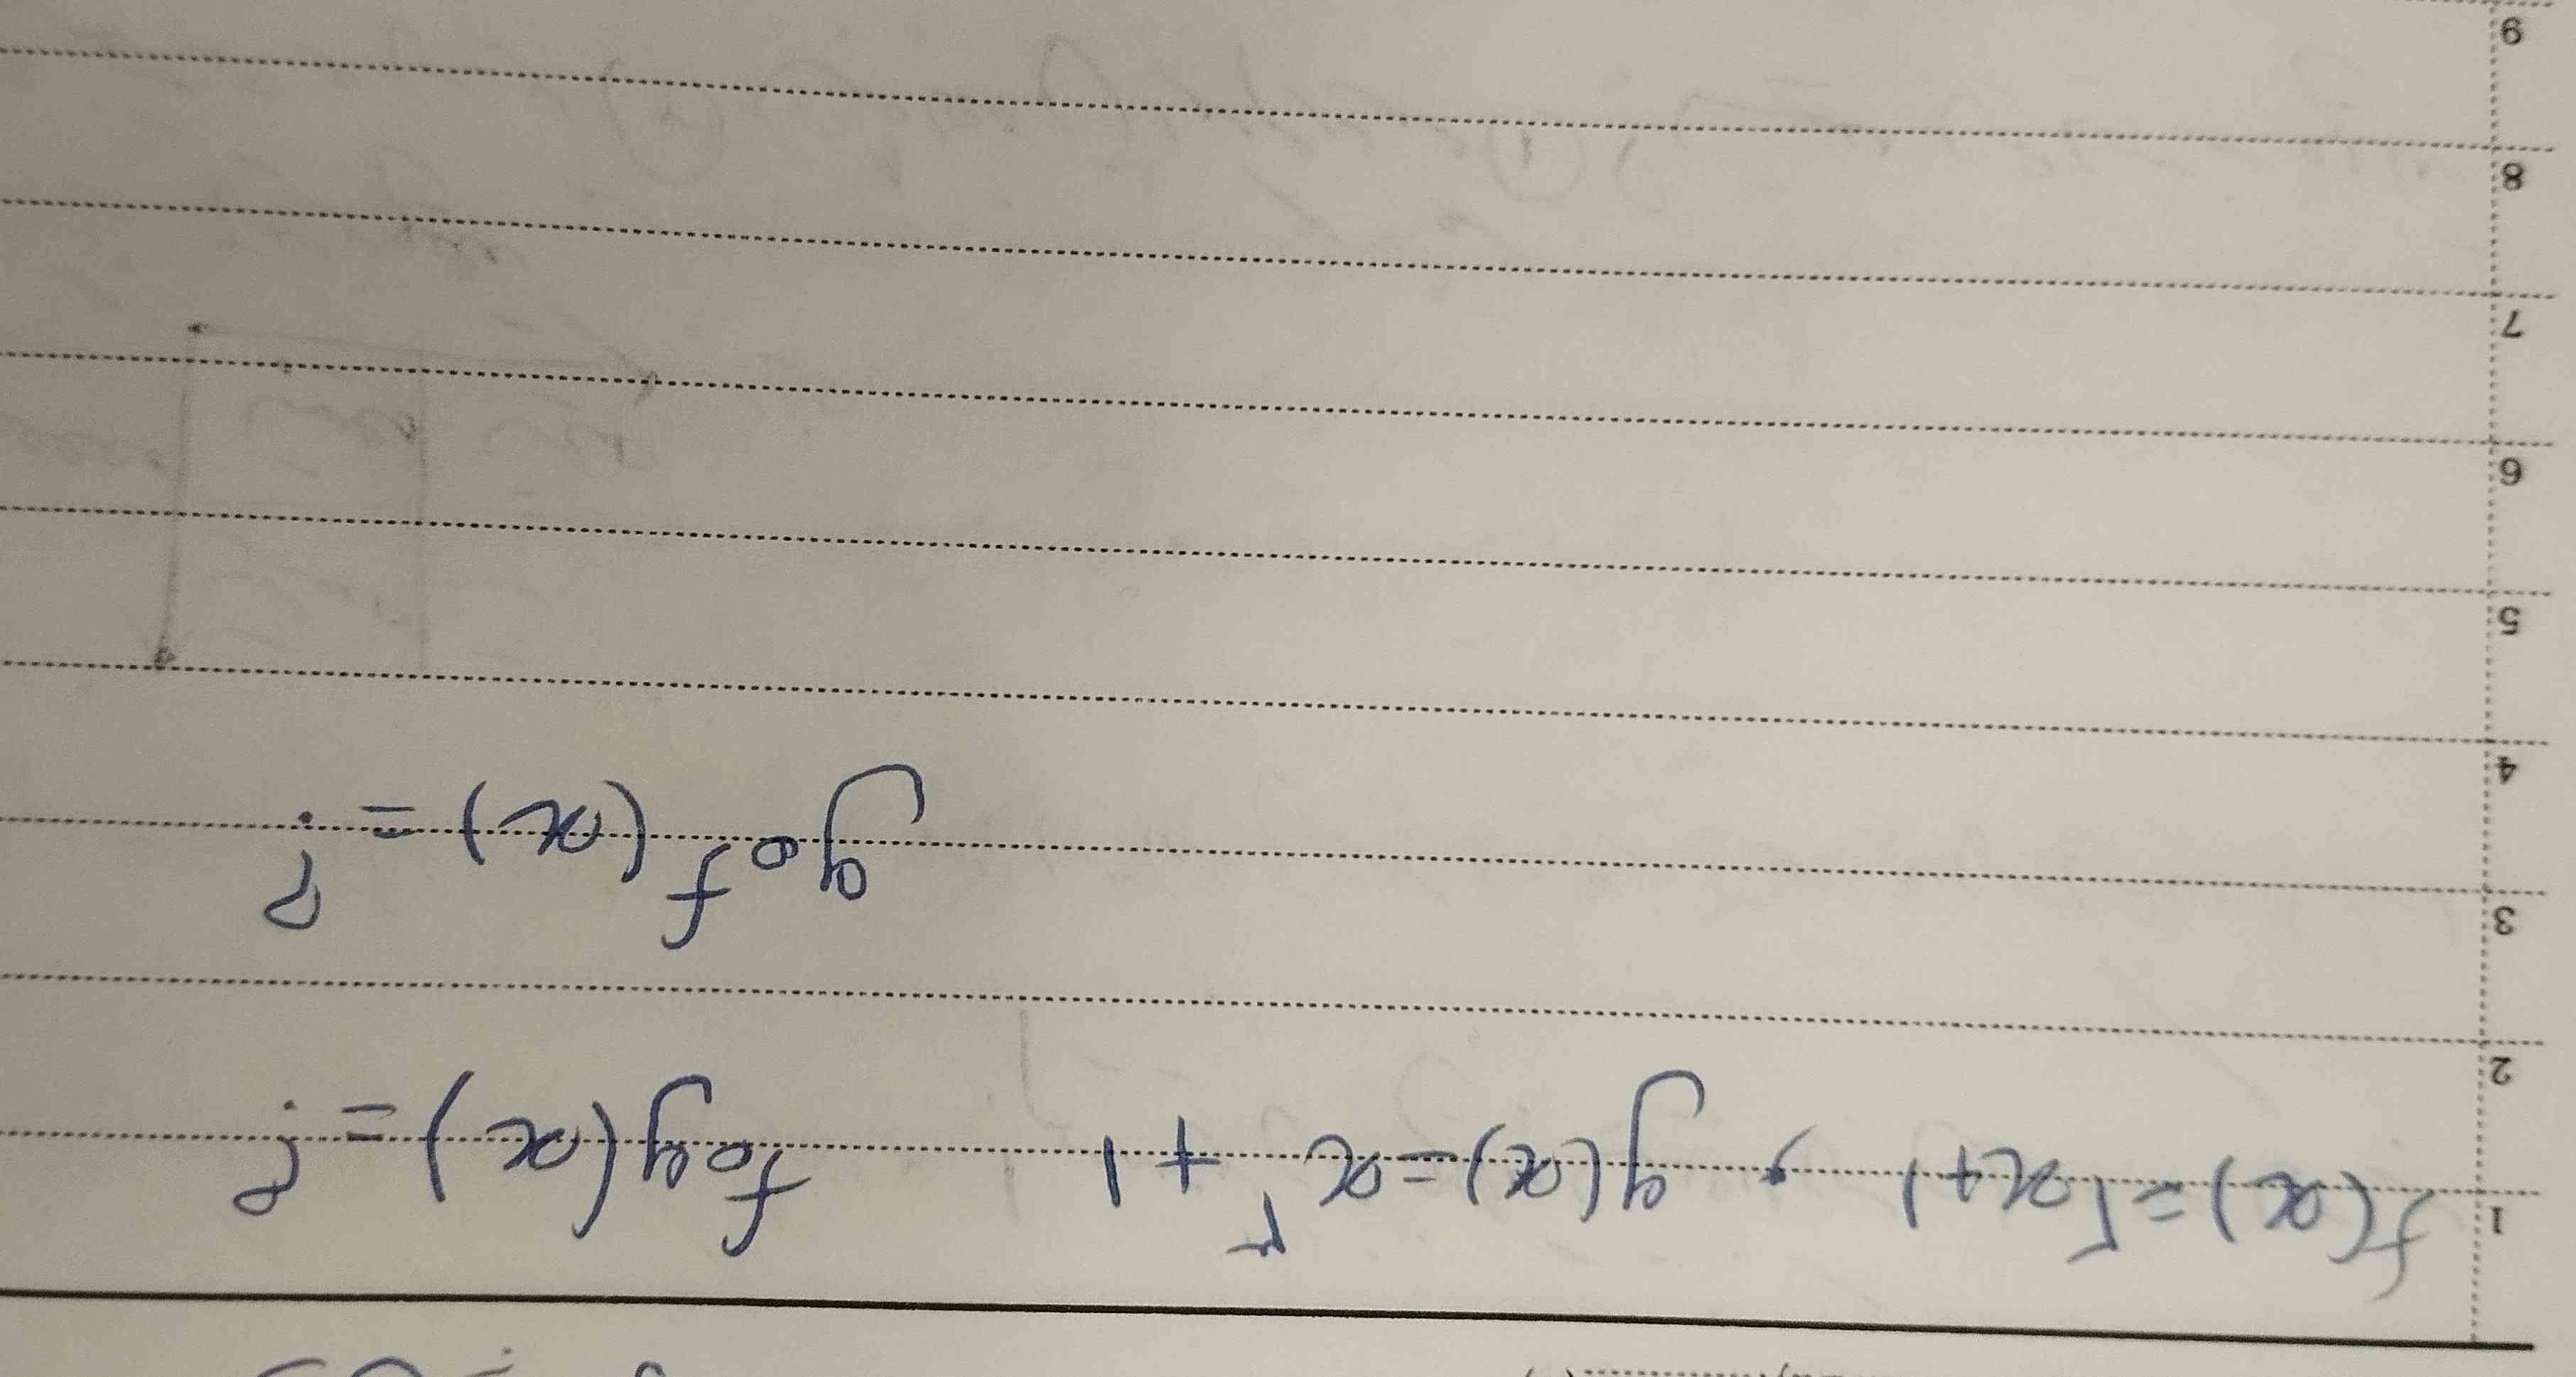 1 f(x)=۲x+1 , g(x)=x^۲ +1 fog(x)=?
2
3 gof(x)=?
4
5
6
7
8
9